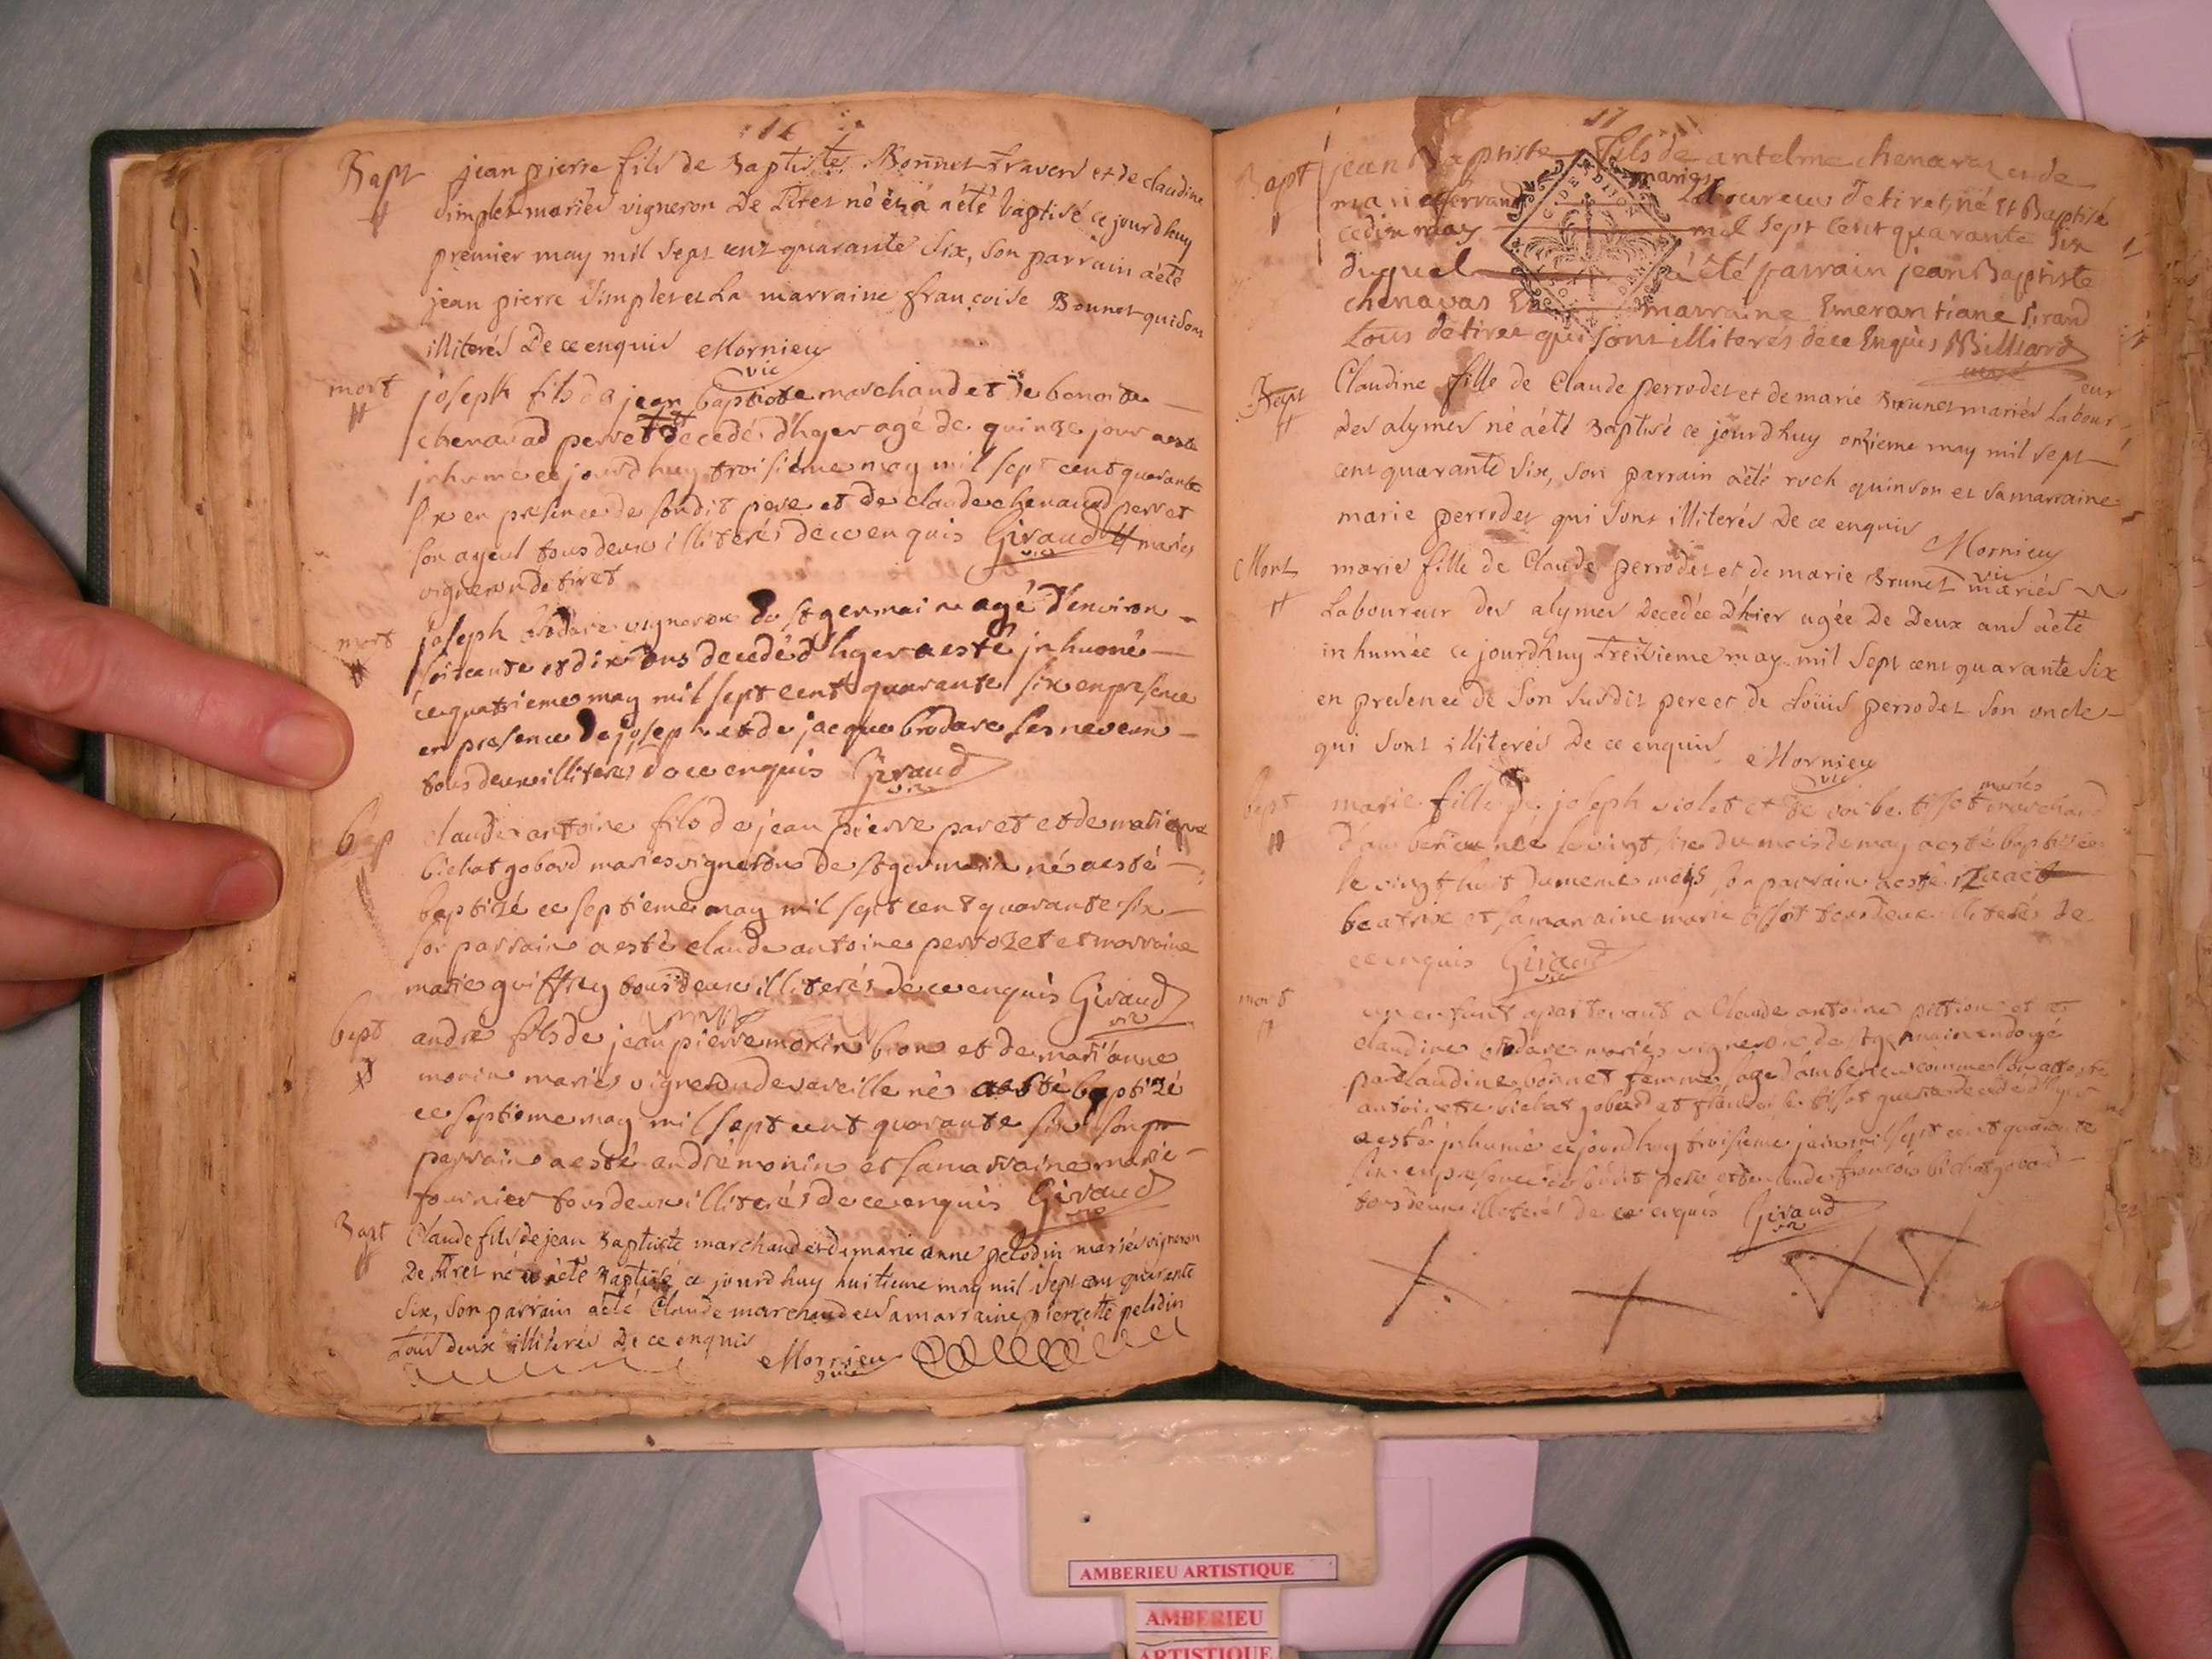 16
Bapt jean pierre fils de Baptiste Bonnet travers et de claudine
simplet mariés vigneron De tiret né et a été baptisé ce jourdhuy
premier may mil sept cent quarante six, son parrain a été
jean pierre simplet et La marraine françoise Bonnet qui sont
illiterés De ce enquis Mornieu
vic
mort joseph fils de jean baptiste marchand et de benoite
chenavad perret decedé dhyer agé de quinze jour a esté
jnhumé ce jourdhuy troisiéme may mil sept cent quarante
six en presence de sondit pere et de claude chenavad perret
son ayeul tous deux illiterés de ce enquis Giraud mariés
vic
vigneron de tiret
mort joseph brodare vigneron de st germain agé d'environ
soixante et dix ans decedé dhyer a esté jnhumé
ce quatrieme may mil sept cent quarante six en presence
en presence de joseph et de jacque brodare ses neveux
tous deux illiterés de ce enquis Giraud
vic
bap claude antoine fils de jean pierre paret et de marie
bichat gobard mariés vignerons de st germain né a esté
baptizé ce septieme may mil sept cent quarante six
son parrain a esté claude antoine perrozet et marraine
marie guiffrey tous deux illiterés de ce enquis Giraud
vic
bapt andré fils de jean pierre monin bron et de mari'anne
monin mariés vigneron de vareille né a esté baptizé
ce septieme may mil sept cent quarante six son
parrain a esté andré monin et sa marraine marie
fournier tous deux illiterés de ce enquis Giraud
vic
Bapt Claude fils de jean Baptiste marchand et de marie anne pelodin mariés vigneron
De tiret né et a été Baptisé ce jourdhuy huitieme may mil sept cent quarante
six, son parrain a été Claude marchand et sa marraine pierrette pelodin
tous deux illiterés De ce enquis
Mornieu
vic
17
Bapt jean Baptiste fils de antelme chenavas et de
marie mariés Laboureur de tiret, né et Baptisé
ce dix may mil sept cent quarante six
duquel a été parrain jean Baptiste
chenavas Et marraine Emerantiane Sirand
tous de tiret qui sont illiterés de ce Enquis Billiard
Bapt Claudine fille de Claude perrodet et de marie Brunet mariés Labour
eur
des alymes né a été Baptisé ce jourdhuy onzieme may mil sept
cent quarante six, son parrain a été roch quinson et sa marraine
marie perrodet qui sont illiterés De ce enquis
Mornieu
vic
Mort marie fille de Claude perrodet et de marie Brunet mariés
Laboureur des alymes Decedée D'hier agée De Deux ans a été
inhumée ce jourdhuy treizieme may mil sept cent quarante six
en presence de son susdit pere et de Loüis perrodet son oncle
qui sont illiterés De ce enquis Mornieu
vic
bapt marie fille de joseph violet et de barbe tissot mariés marchand
d'amberieu née le vingt six du mois de may a esté baptisée
le vingt huit du meme mois son parrain a esté
beatrix et sa marraine marie tissot tous deux illiterés de
ce enquis Giraud
vic
mort un enfant apartenant a Claude antoine pittion et de
claudine brodare mariés vigneron de st germain endoyé
par claudine bonnet femme sage d'amberieu comme l'on atteste
antoinette bichat gobard et tissot decedé dhyer
a esté jnhumé ce jourdhuy troisieme juin mil sept cent quarante
six en presence de sondit pere et de françois bichat gobard
tous deux illiterés de ce enquis Giraud
vic
AMBERIEU ARTISTIQUE
AMBERIEU
ARTISTIQUE